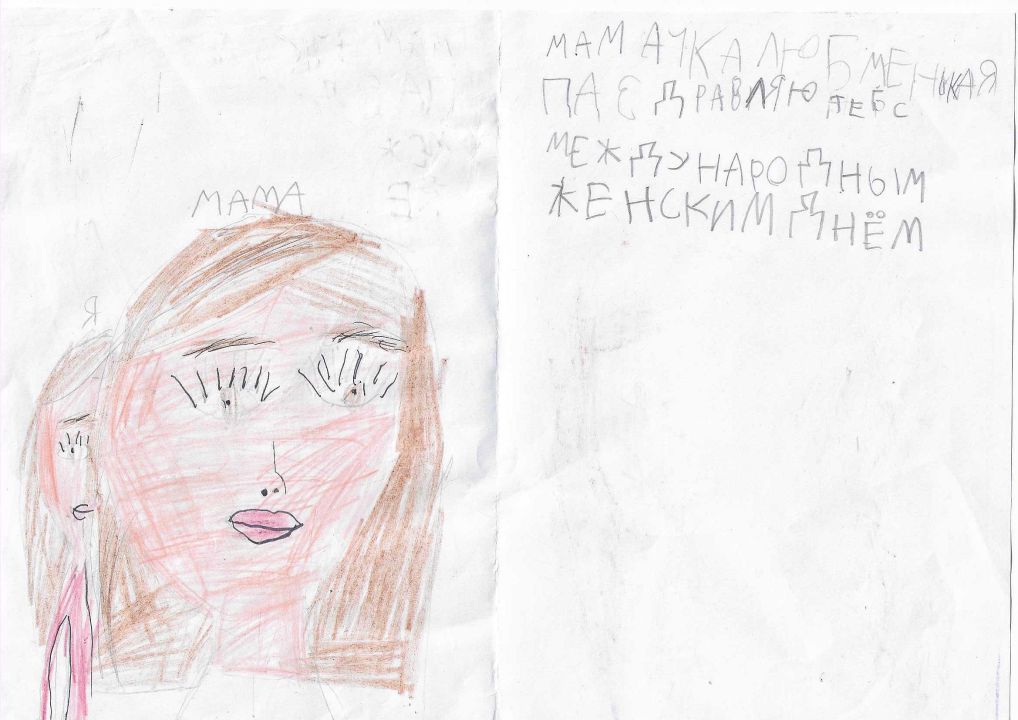 МАМА
Я
МАМАЧКА ЛЮБМЕНЬКАЯ
ПАЕДРАВЛЯЮ ТЕБС
МЕЖДУНАРОДНЫМ
ЖЕНСКИМ ДНЁМ